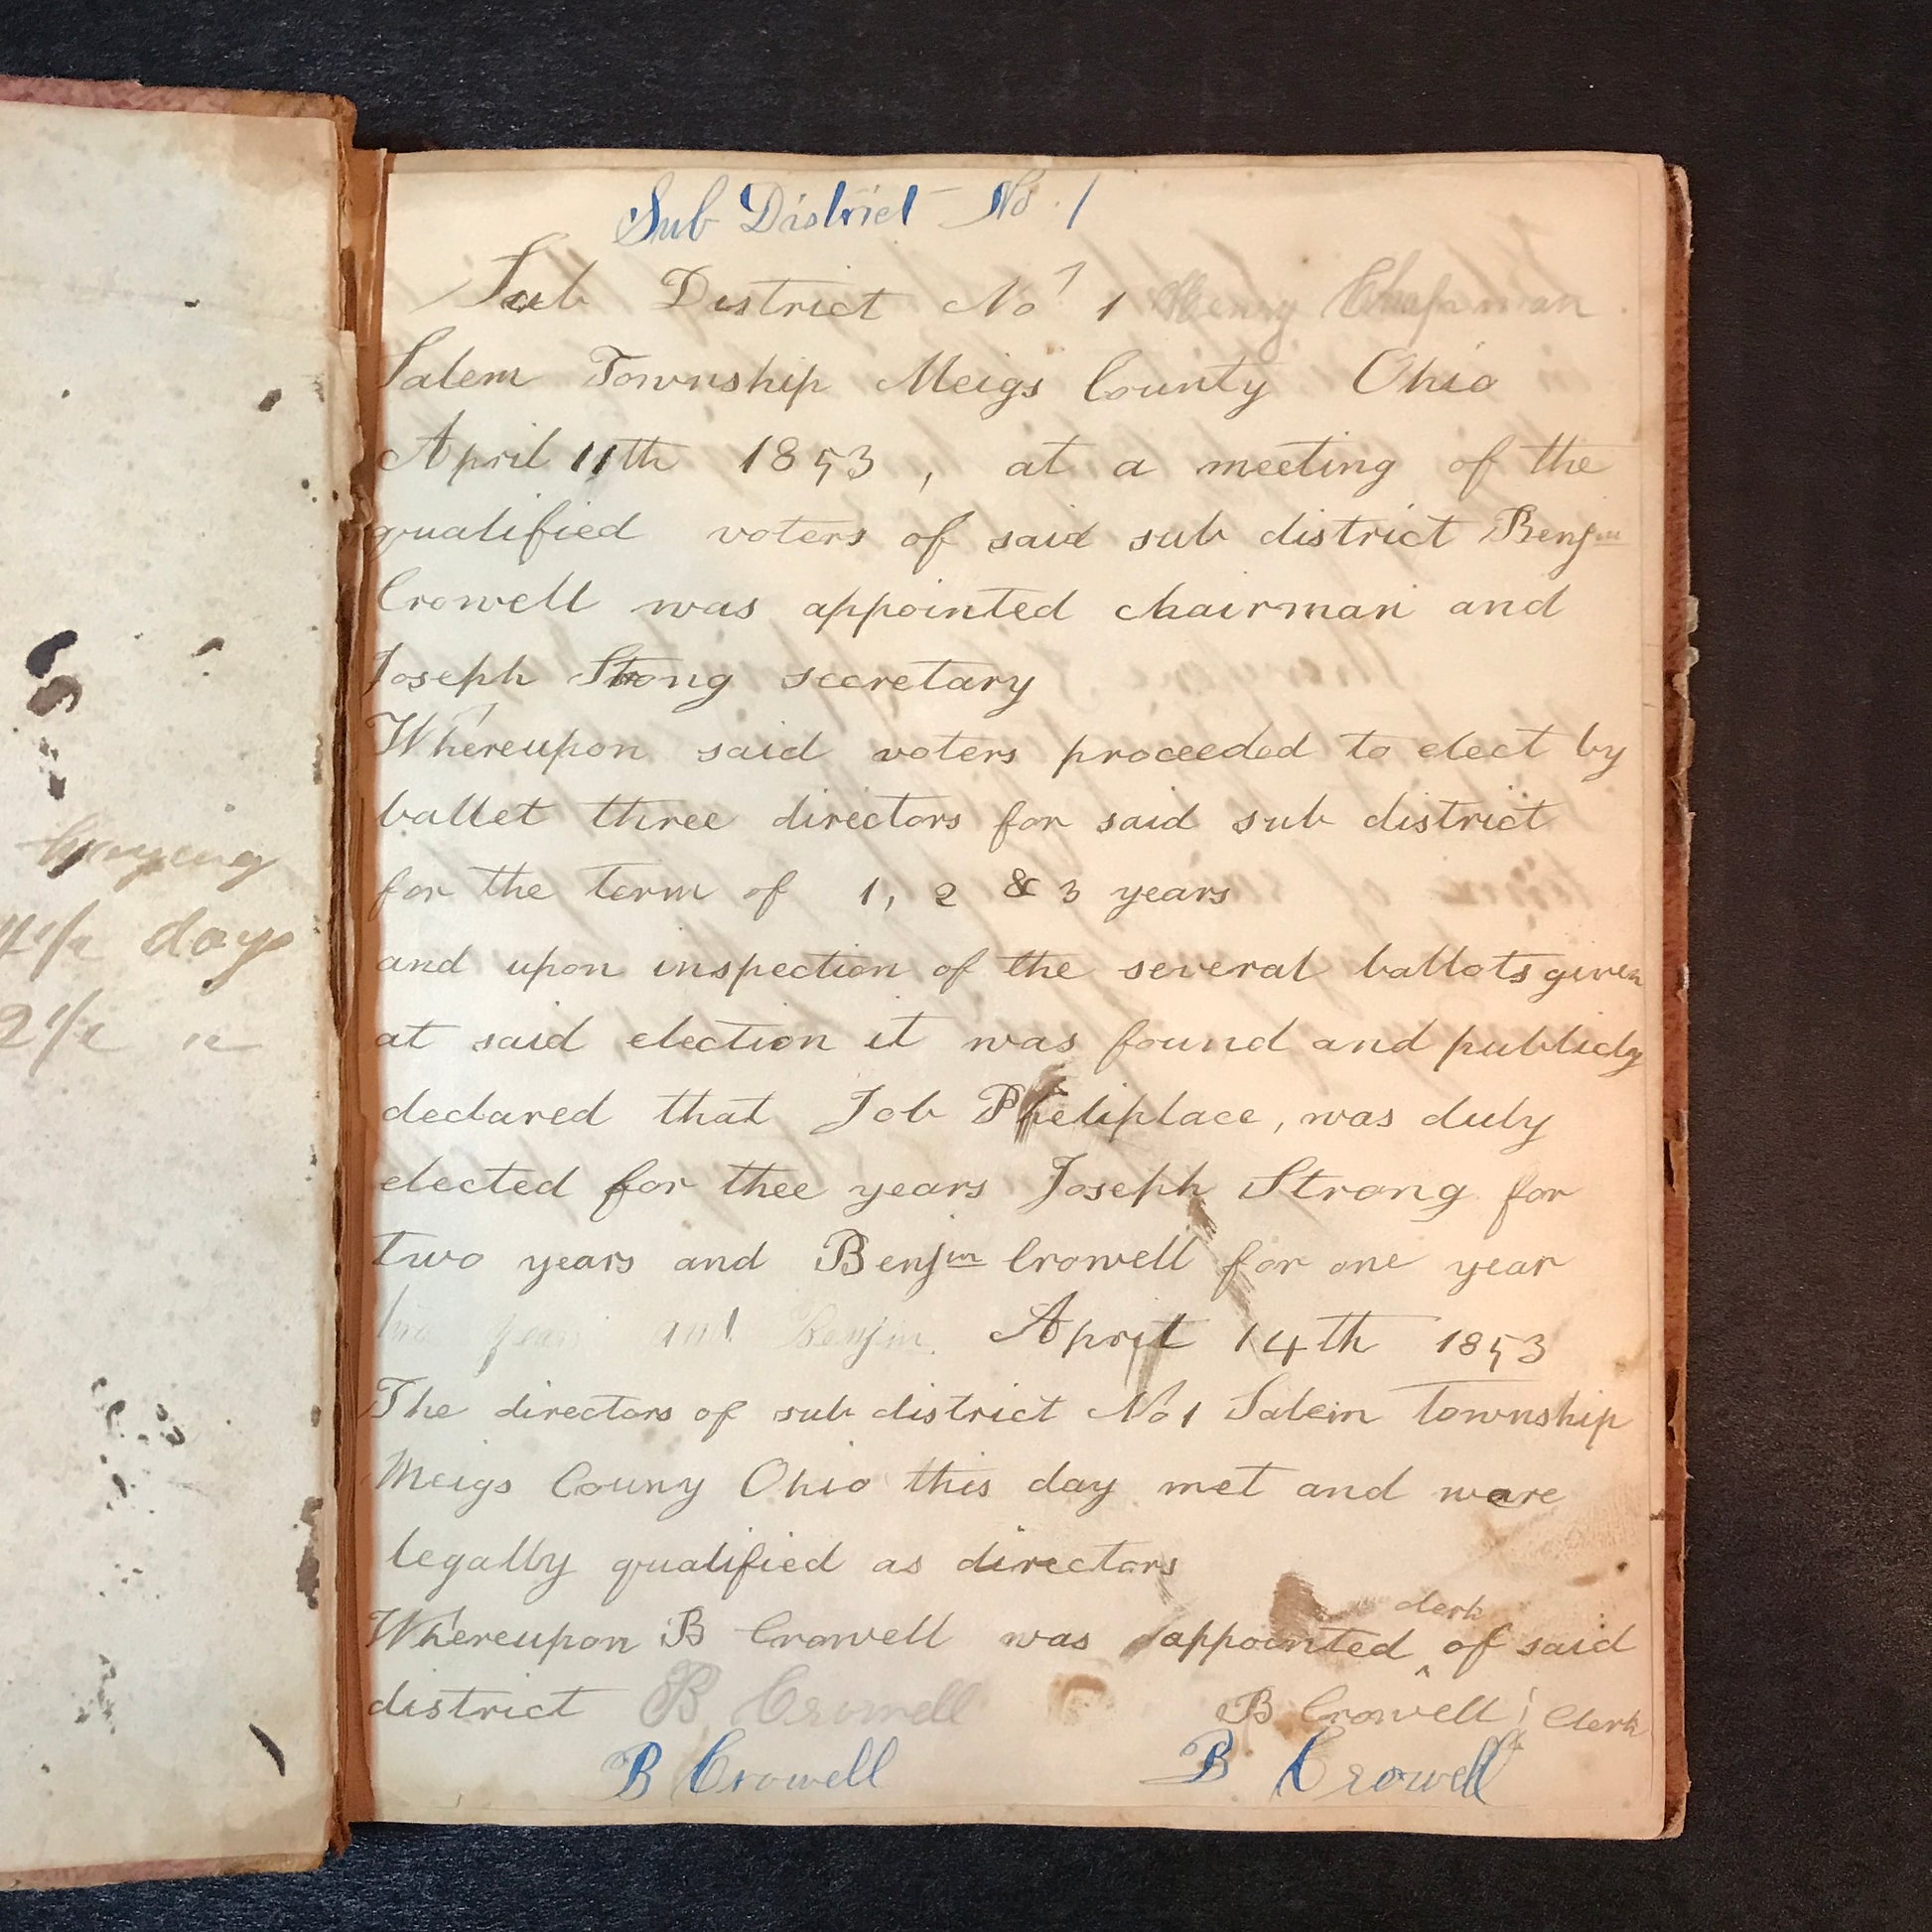 day
2 1/2 "
Sub District No. 1
Sub District No 1 Henry Chapman
Salem Township Meigs County Ohio
April 11th 1853, at a meeting of the
qualified voters of said sub district Benjm
Crowell was appointed chairman and
Joseph Strong secretary
Whereupon said voters proceeded to elect by
ballet three directors for said sub district
for the term of 1, 2 & 3 years
and upon inspection of the several ballots given
at said election it was found and publicly
declared that Job Pheliplace, was duly
elected for thee years Joseph Strong for
two years and Benjm Crowell for one year
two years and Benjm. April 14th 1853
The directors of sub district No 1 Salem Township
Meigs Couny Ohio this day met and were
legally qualified as directors
Whereupon B Crowell was appointed clerk of said
district B Crowell B Crowell Clerk
B Crowell B Crowell